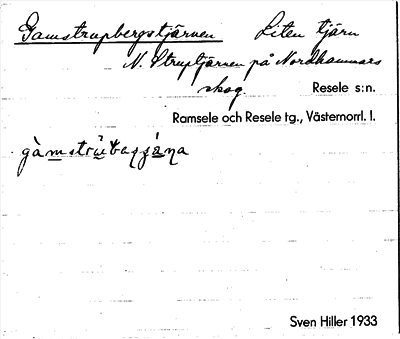 Gamstrupbergstjärnen Liten tjärn
N. Struptjärnen på Nordhammars
skog. Resele s:n.
Ramsele och Resele tg., Västernorrl. l.
Sven Hiller 1933